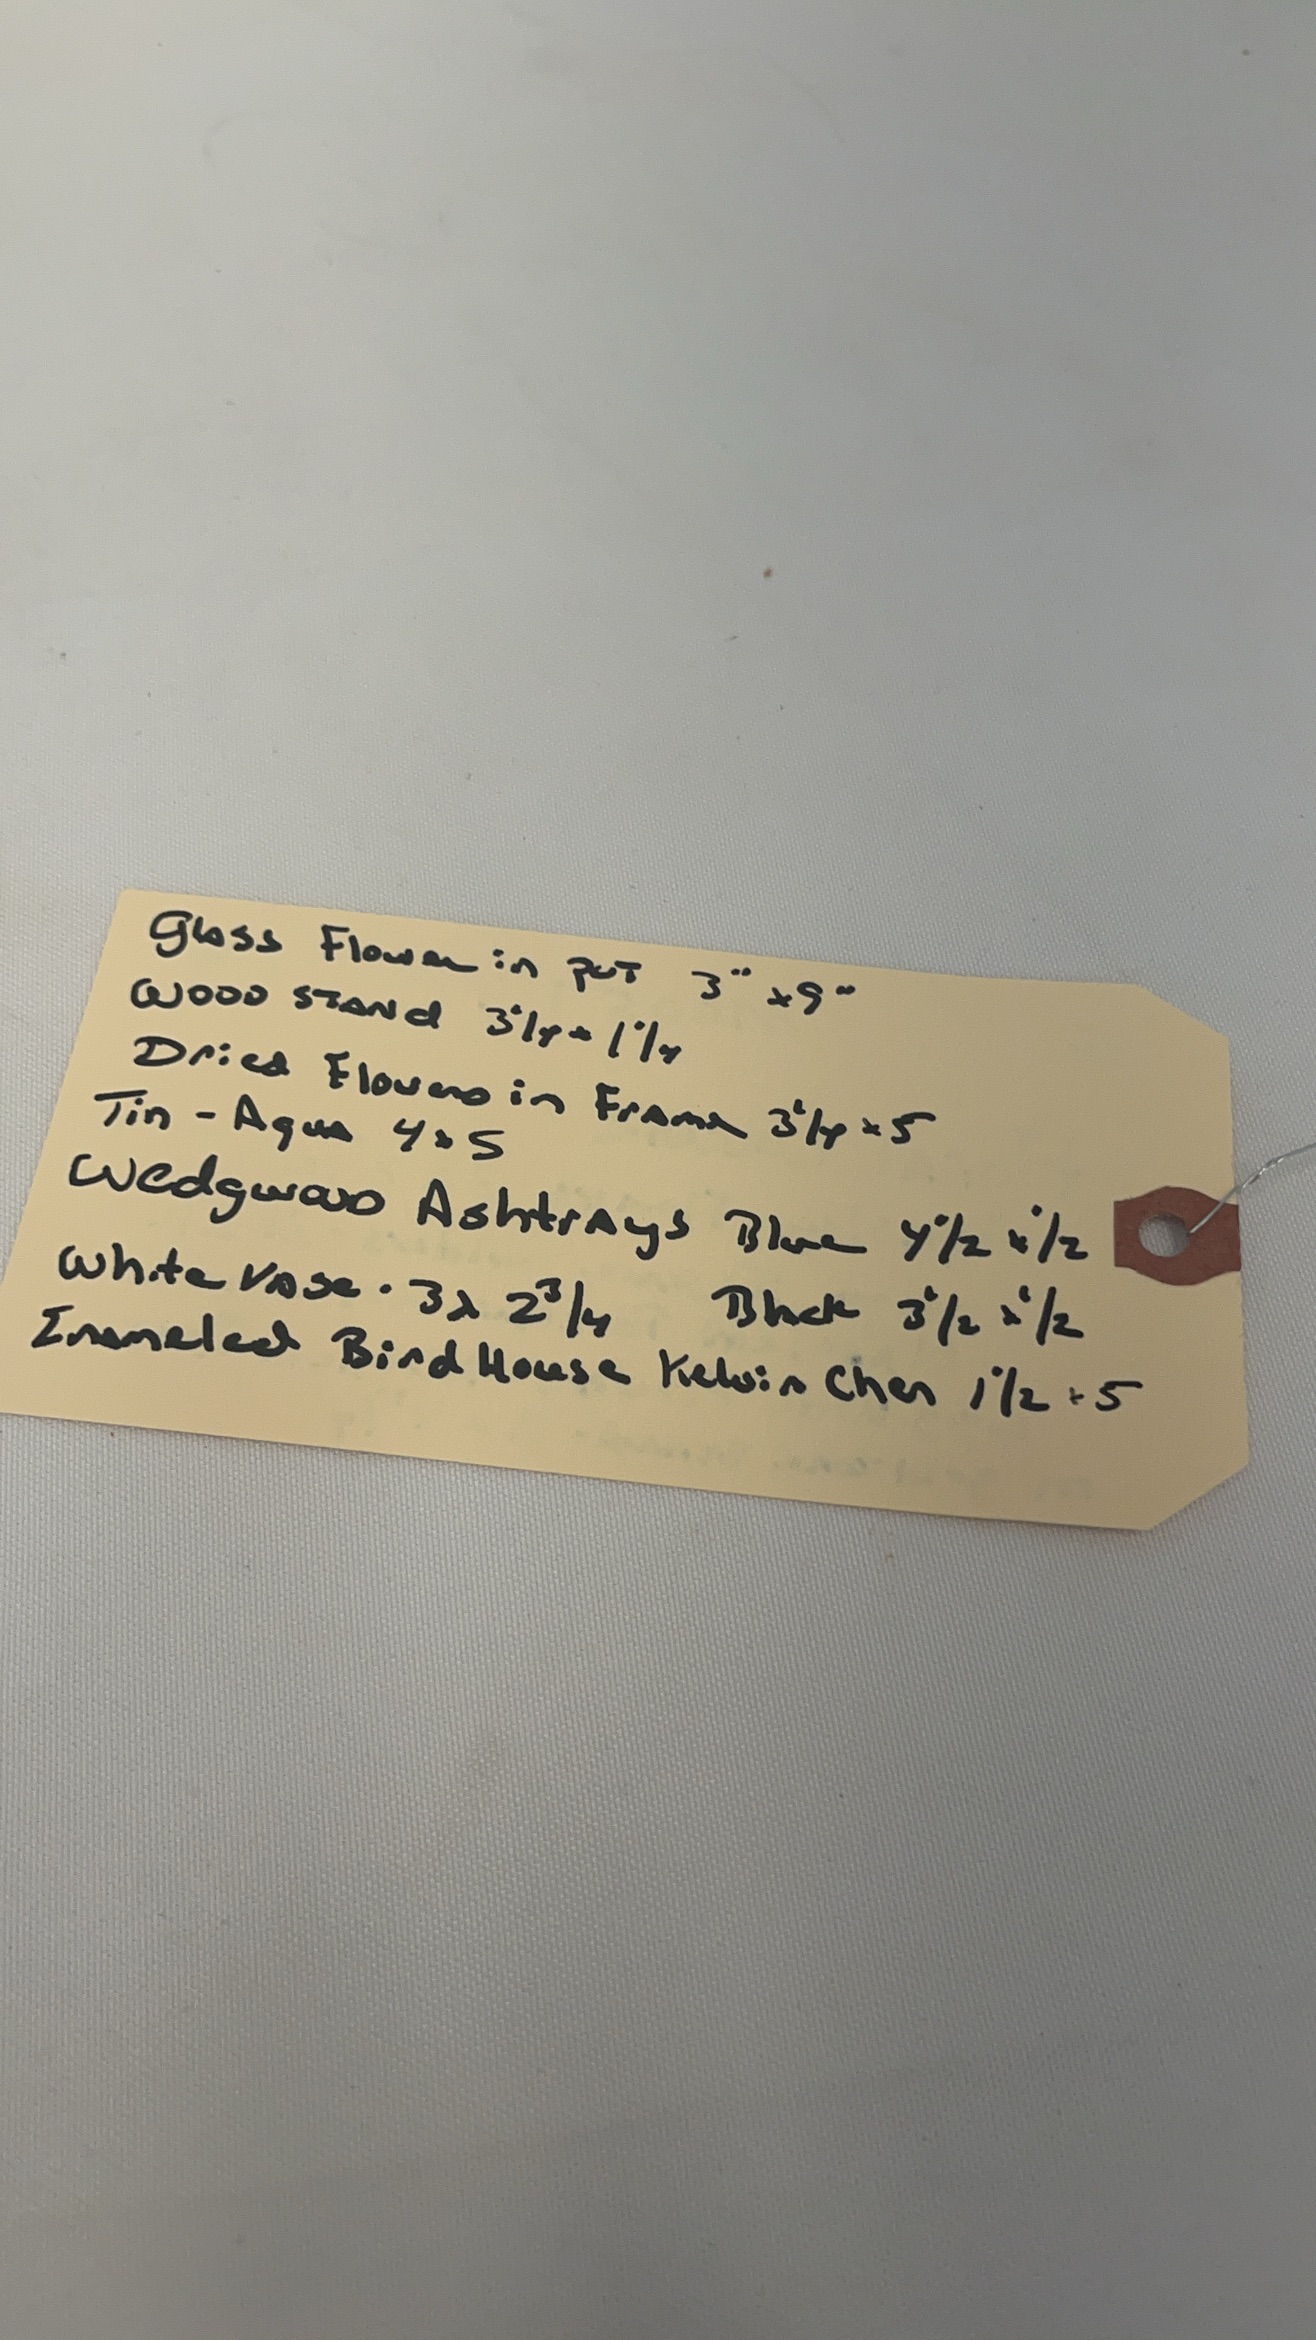 Glass Flower in pot 3" x 9"
Wood Stand 3 1/4 x 1 1/4
Dried Flowers in Frame 3 1/4 x 5
Tin - Aqua 4 x 5
Wedgwood Ashtrays Blue 4 1/2 x 1/2
White Vase. 3 x 2 3/4 Black 3 1/2 x 1/2
Enameled Bird House Kelvin Chen 1 1/2 x 5